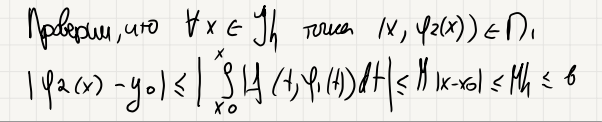 Проверим, что ∀ x ∈ Jh точка (x, φ₂(x)) ∈ П,
|φ₂(x) - y₀| ≤ | ∫ₓ₀ˣ |f (t, φ₁(t)) dt | ≤ M |x-x₀| ≤ Mh ≤ b